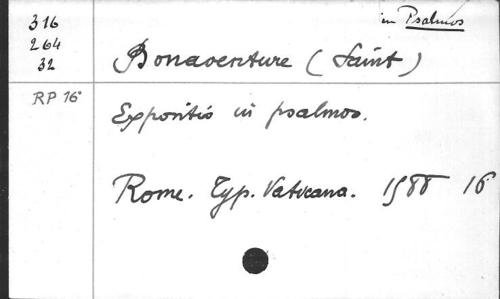 in Psalmos
316
264
32
Bonaventure (Saint)
RP 16°
Expositio in psalmos.
Rome. Typ. Vaticana. 1588 16